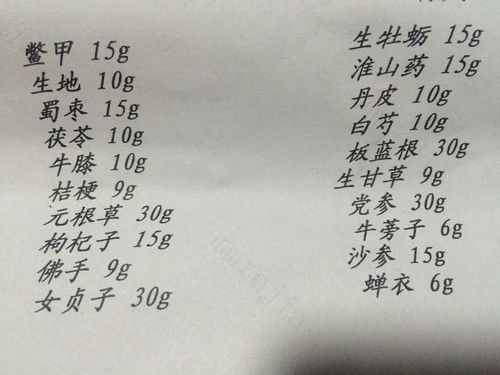 鳖甲 15g
生地 10g
蜀枣 15g
茯苓 10g
牛膝 10g
桔梗 9g
元根草 30g
枸杞子 15g
佛手 9g
女贞子 30g
生牡蛎 15g
淮山药 15g
丹皮 10g
白芍 10g
板蓝根 30g
生甘草 9g
党参 30g
牛蒡子 6g
沙参 15g
蝉衣 6g